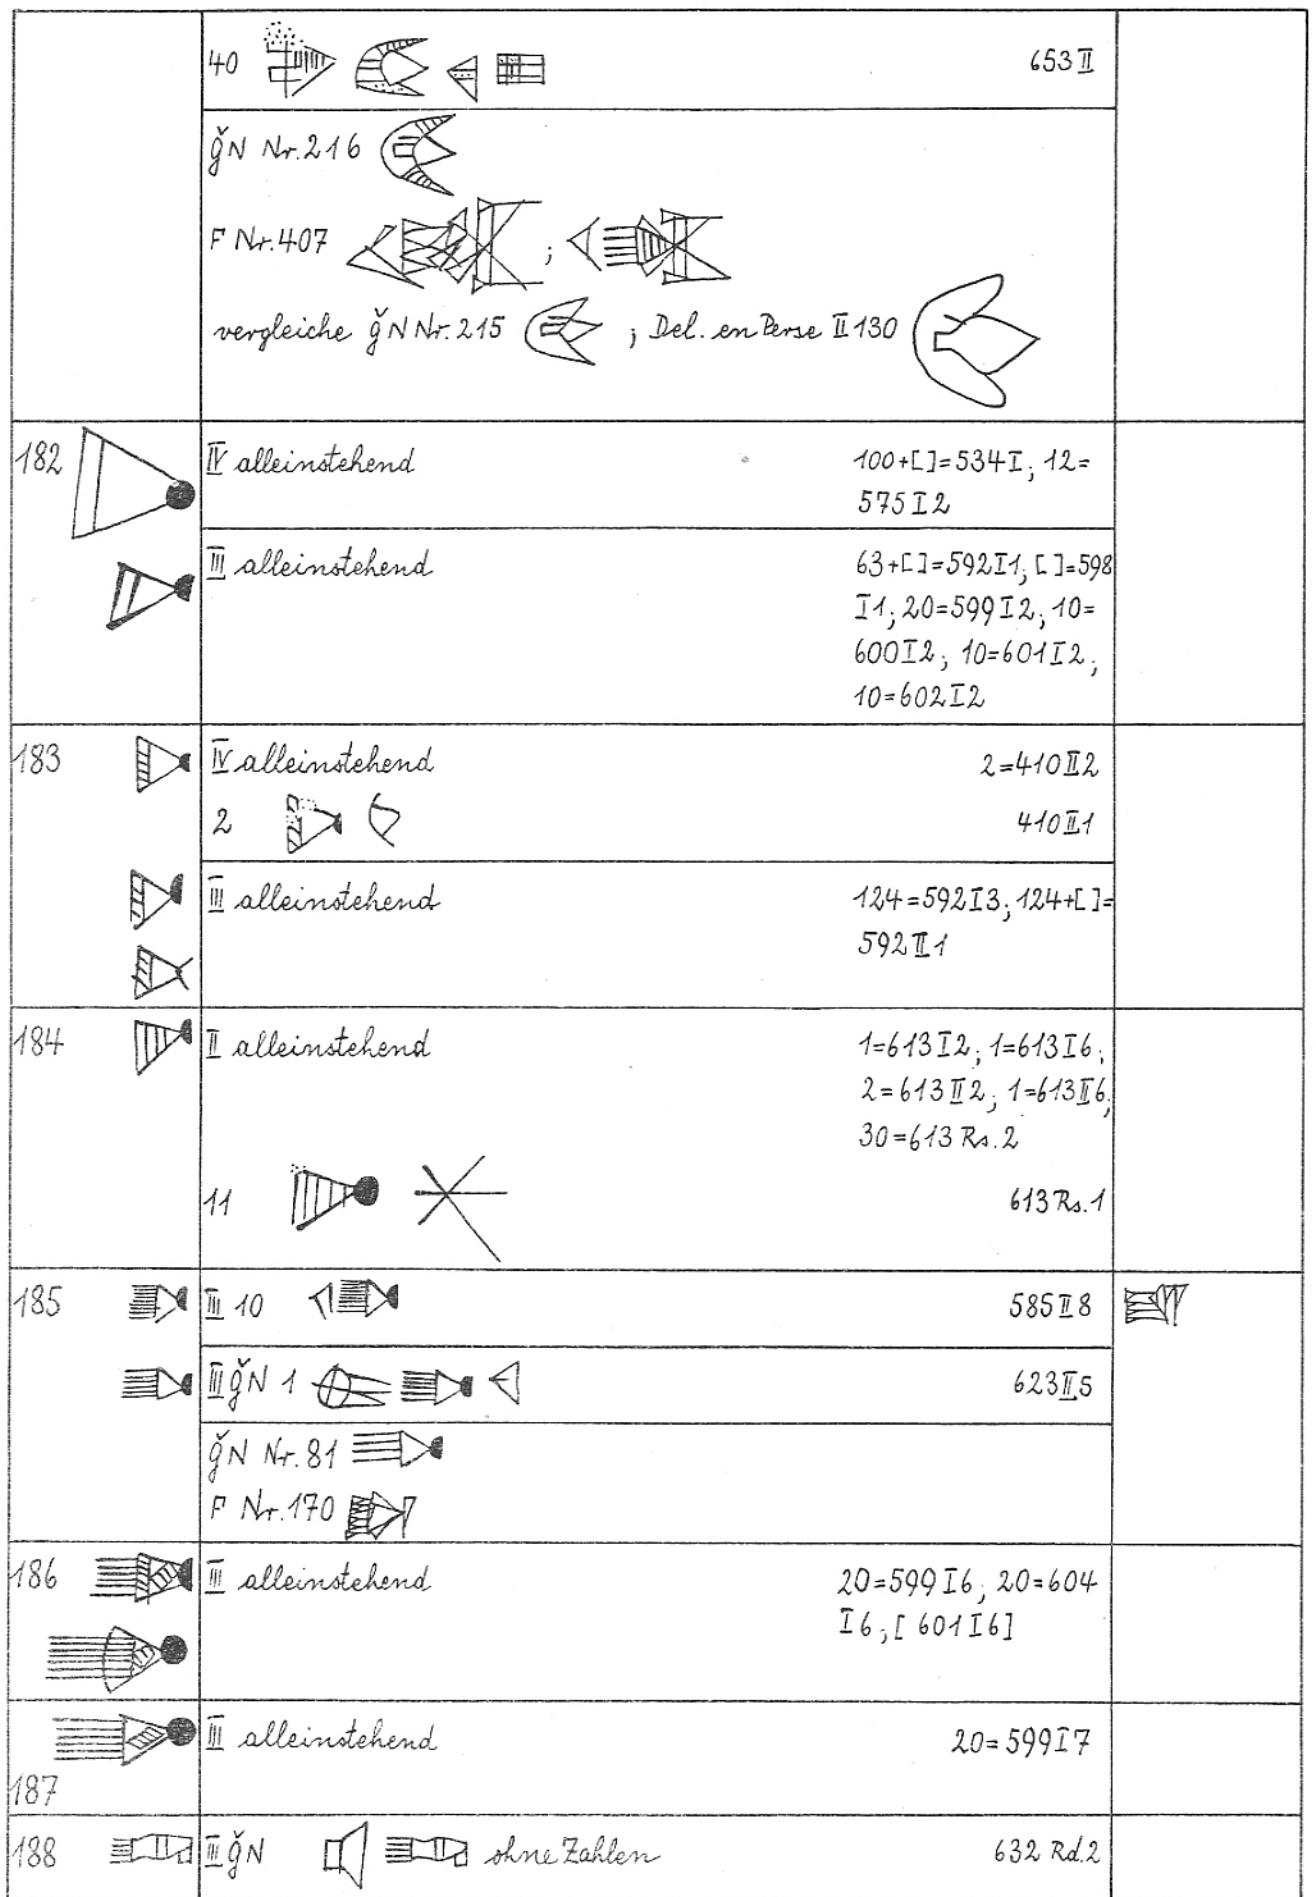 40 653 II
ǧN Nr. 216
F Nr. 407 ;
vergleiche ǧN Nr. 215 ; Del. en Perse II 130
182 IV alleinstehend 100+[ ]=534 I; 12=
575 I 2
III alleinstehend 63+[ ]=592 I 1; [ ]=598
I 1; 20=599 I 2; 10=
600 I 2; 10=601 I 2;
10=602 I 2
183 IV alleinstehend 2=410 II 2
2 410 II 1
III alleinstehend 124=592 I 3; 124+[ ]=
592 II 1
184 II alleinstehend 1=613 I 2; 1=613 I 6;
2=613 II 2; 1=613 II 6;
30=613 Rs. 2
11 613 Rs. 1
185 III 10 585 II 8
III ǧN 1 623 II 5
ǧN Nr. 81
F Nr. 170
186 III alleinstehend 20=599 I 6; 20=604
I 6; [601 I 6]
187 III alleinstehend 20=599 I 7
188 III ǧN ohne Zahlen 632 Rd. 2